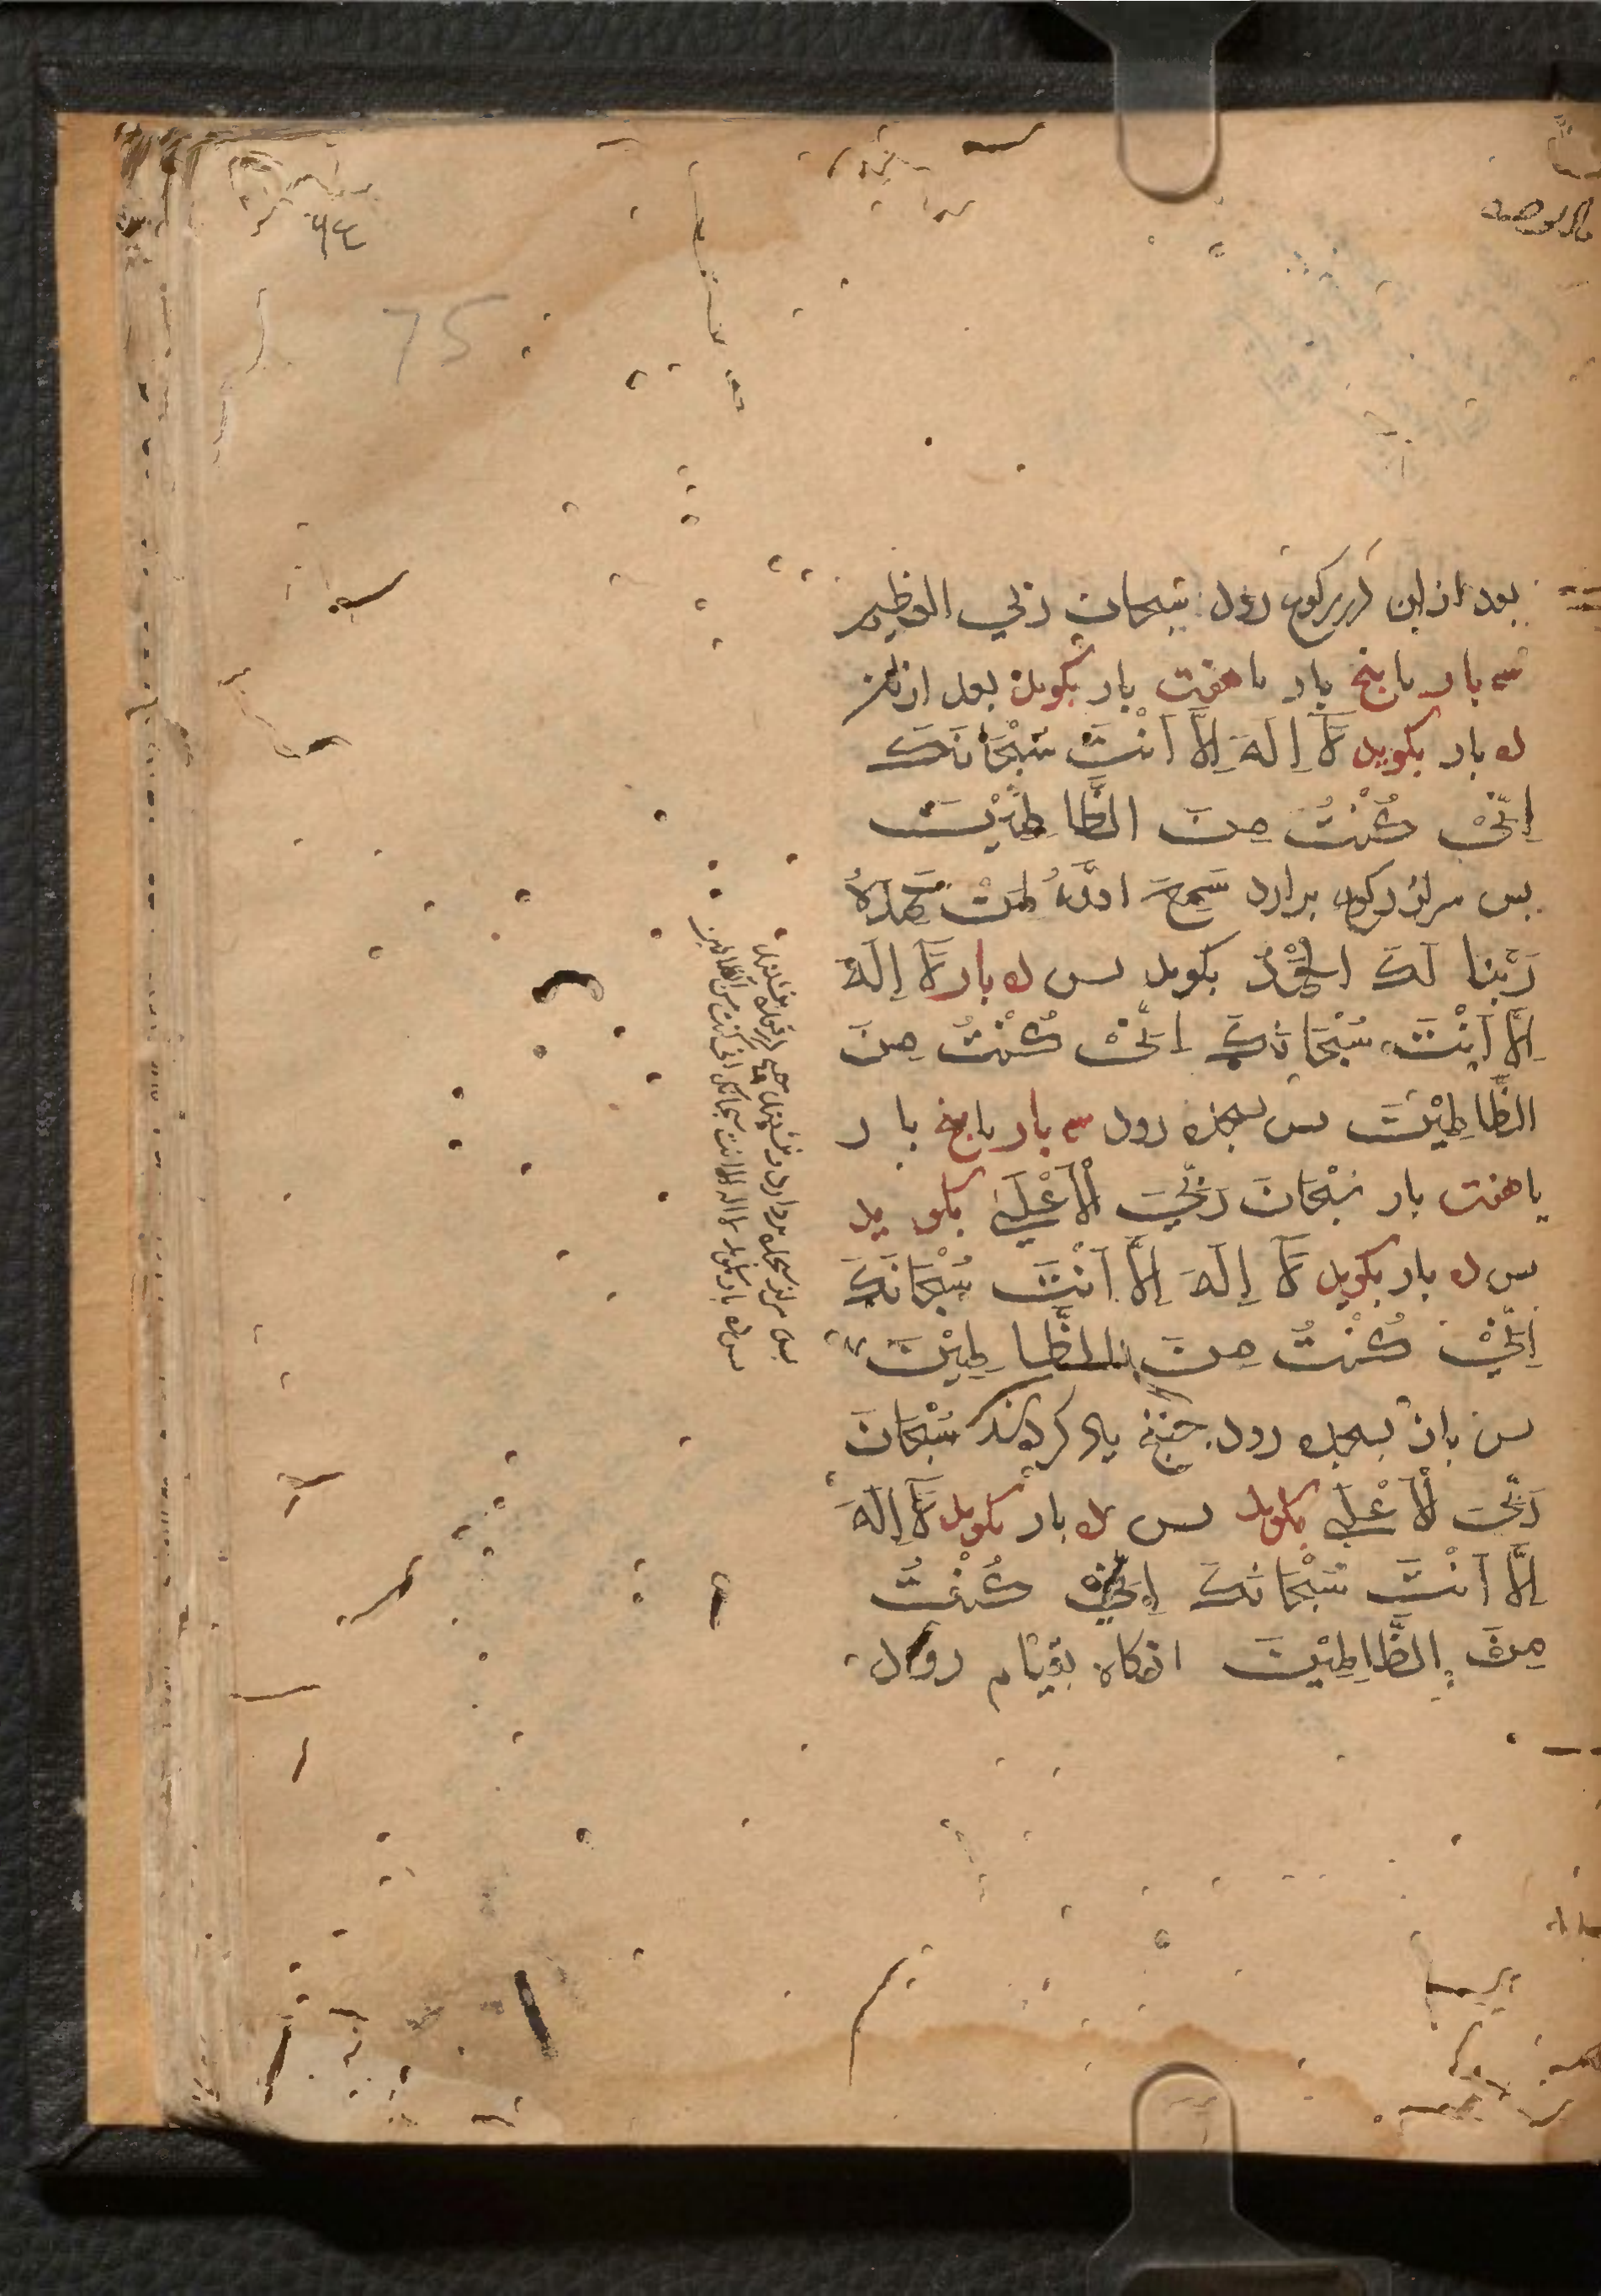 75
بعد ازین در رکوع رود سبحان ربي العظيم
سه بار یا پنج بار یا هفت بار بکوید بعد ازان
ده بار بکوید لَآ اِلَهَ اِلَّا اَنْتَ سُبْحَانَكَ
اِنِّيْ كُنْتُ مِنَ الظَّالِمِيْنَ
پس سر از رکوع بردارد سَمِعَ اللَّهُ لِمَنْ حَمِدَهُ
رَبَّنَا لَكَ الْحَمْدُ بکوید پس ده بار لَآ اِلَهَ
اِلَّا اَنْتَ سُبْحَانَكَ اِنِّيْ كُنْتُ مِنَ
الظَّالِمِيْنَ پس بسجده رود سه بار یا پنج بار
یا هفت بار سُبْحَانَ رَبِّيَ الْاَعْلَى بکوید
پس ده بار بکوید لَآ اِلَهَ اِلَّا اَنْتَ سُبْحَانَكَ
اِنِّيْ كُنْتُ مِنَ الظَّالِمِيْنَ
پس باز بسجده رود چنانچه یاد کردند سُبْحَانَ
رَبِّيَ الْاَعْلَى بکوید پس ده بار بکوید لَآ اِلَهَ
اِلَّا اَنْتَ سُبْحَانَكَ اِنِّيْ كُنْتُ
مِنَ الظَّالِمِيْنَ انکاه بقیام رود
پس سر از سجده بردارد و بنشیند
پس ده بار بکوید لا اله الا انت سبحانک انی کنت من الظالمین